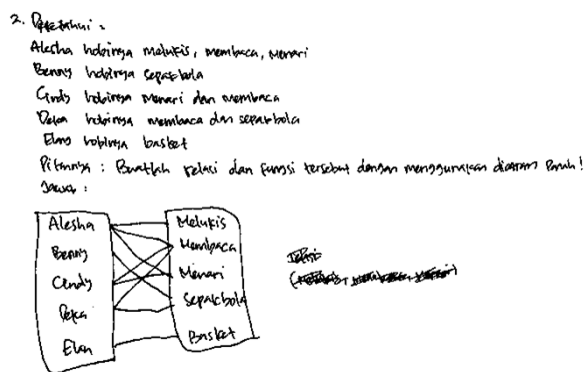 2. Diketahui :
Alesha hobinya melukis, membaca, menari
Benny hobinya sepakbola
Cindy hobinya menari dan membaca
Deka hobinya membaca dan sepakbola
Elan hobinya basket
Ditanya : Buatlah relasi dan fungsi tersebut dengan menggunakan diagram Panah!
Jawab :
Alesha
Benny
Cindy
Deka
Elan
Melukis
Membaca
Menari
Sepakbola
Basket